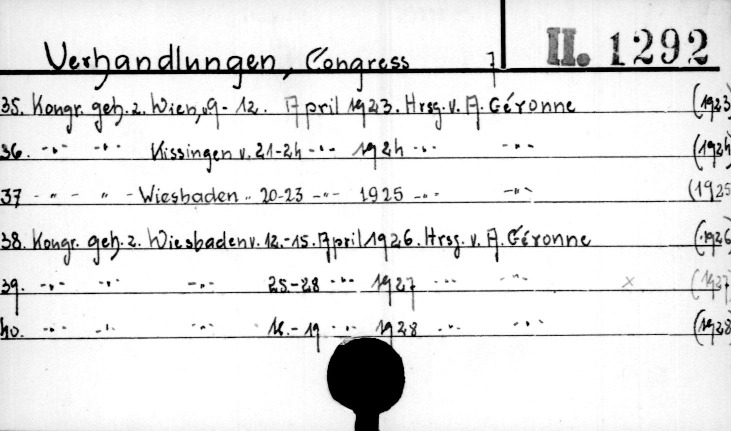 Verhandlungen, Congress 7 II. 1292
35. Kongr. geh. z. Wien, v. 9 - 12. April 1923. Hrsg. v. A. Géronne (1923)
36. -"- -"- Kissingen v. 21-24 -"- 1924 -"- -"- (1924)
37 -"- " - Wiesbaden " 20-23 -"- 1925 -"- -"- (1925
38. Kongr. geh. z. Wiesbaden v. 12.-15. April 1926. Hrsg. v. A. Géronne (1926)
39. -"- -"- -"- 25.-28 -"- 1927 -"- -"- x (1927)
40. -"- -"- -"- 16.-19 -"- 1928 -"- -"- (1928)